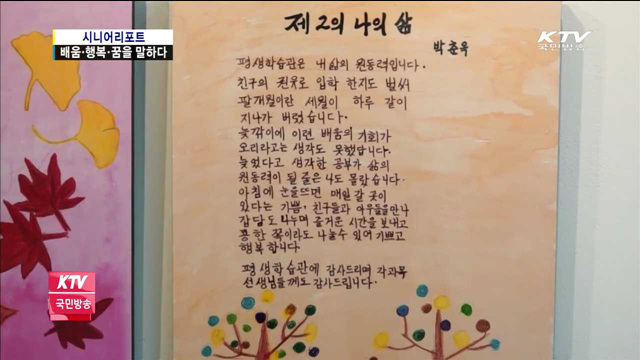 시니어리포트
배움·행복·꿈을 말하다
KTV
국민방송
제 2의 나의 삶
박춘옥
평생학습관은 내 삶의 원동력입니다.
친구의 권유로 입학 한지도 벌써
팔개월이란 세월이 하루 같이
지나가 버렸습니다.
늦깎이에 이런 배움의 기회가
오리라고는 생각도 못했답니다.
늦었다고 생각한 공부가 삶의
원동력이 될 줄은 나도 몰랐습니다.
아침에 눈을뜨면 매일 갈 곳이
있다는 기쁨. 친구들과 아우들을만나
잡담도 나누며 즐거운 시간을 보내고
콩한 쪽이라도 나눌수 있어 기쁘고
행복 합니다
평생학습관에 감사드리며 각과목
선생님들께도 감사드립니다.
KTV
국민방송